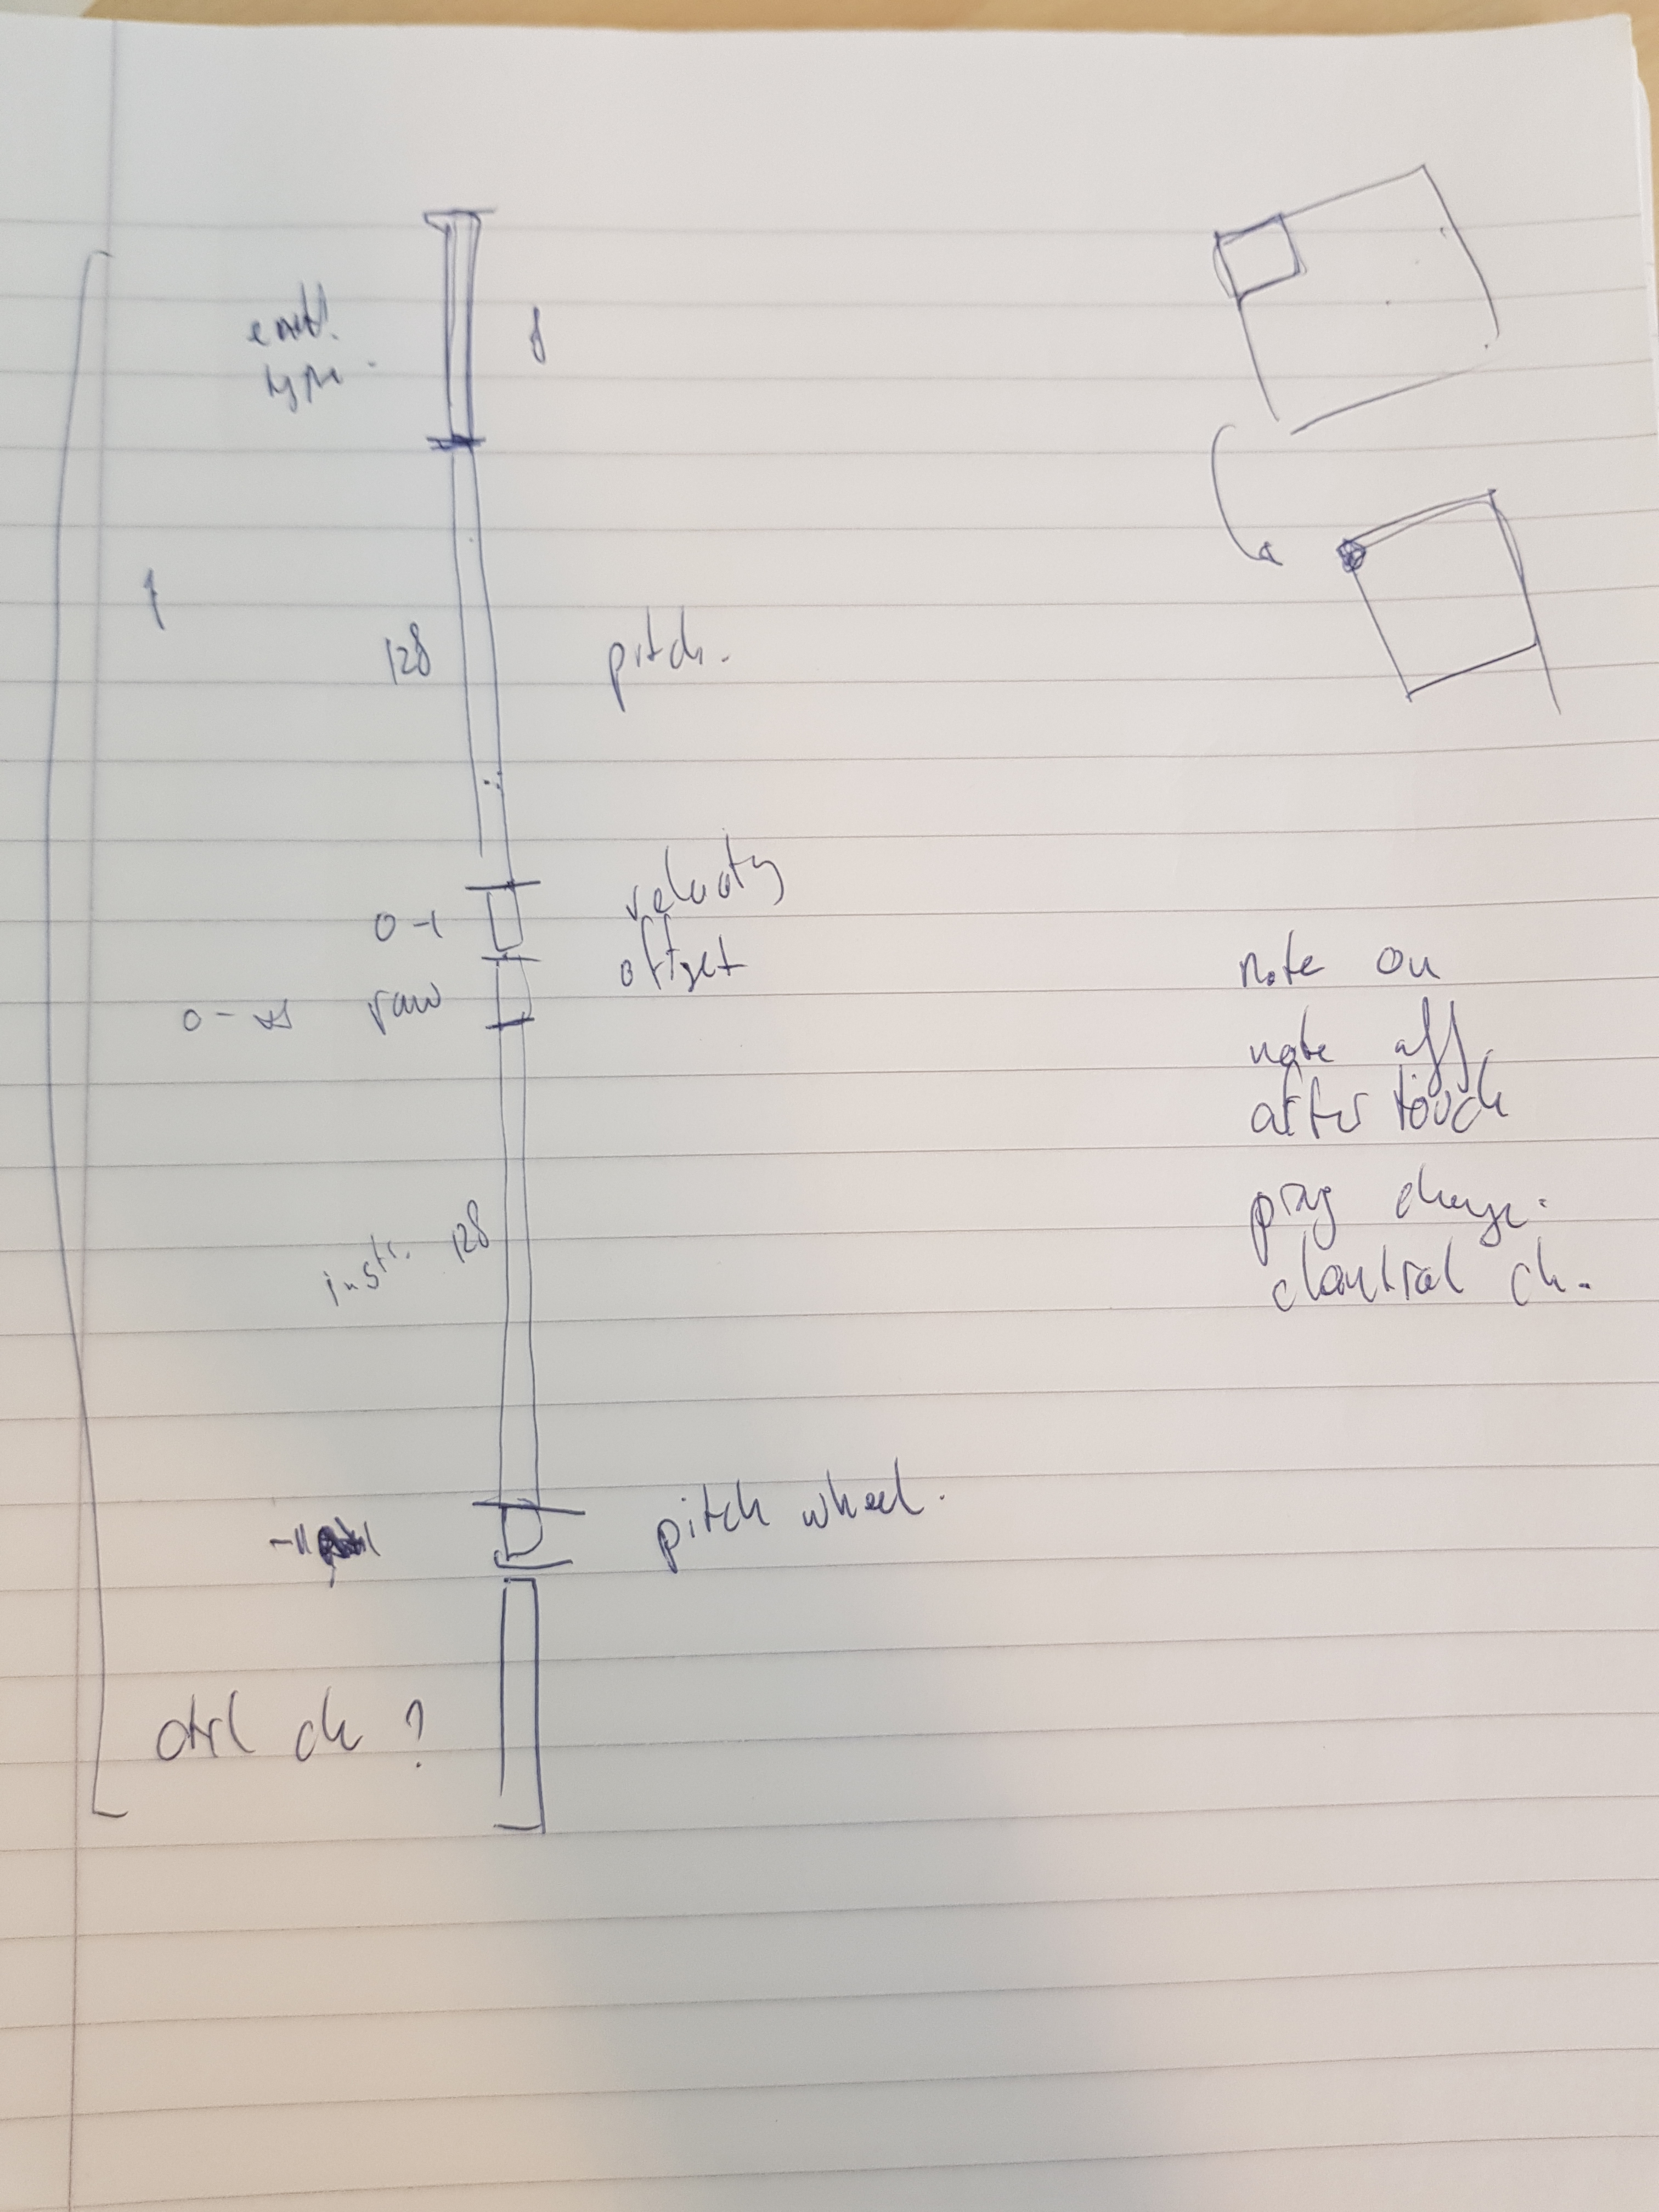 type
128
pitch.
0-1
velocity
offset
0-∞ raw
instr. 128
pitch wheel.
ctrl ch ?
note on
note off
after touch
prog change.
control ch.